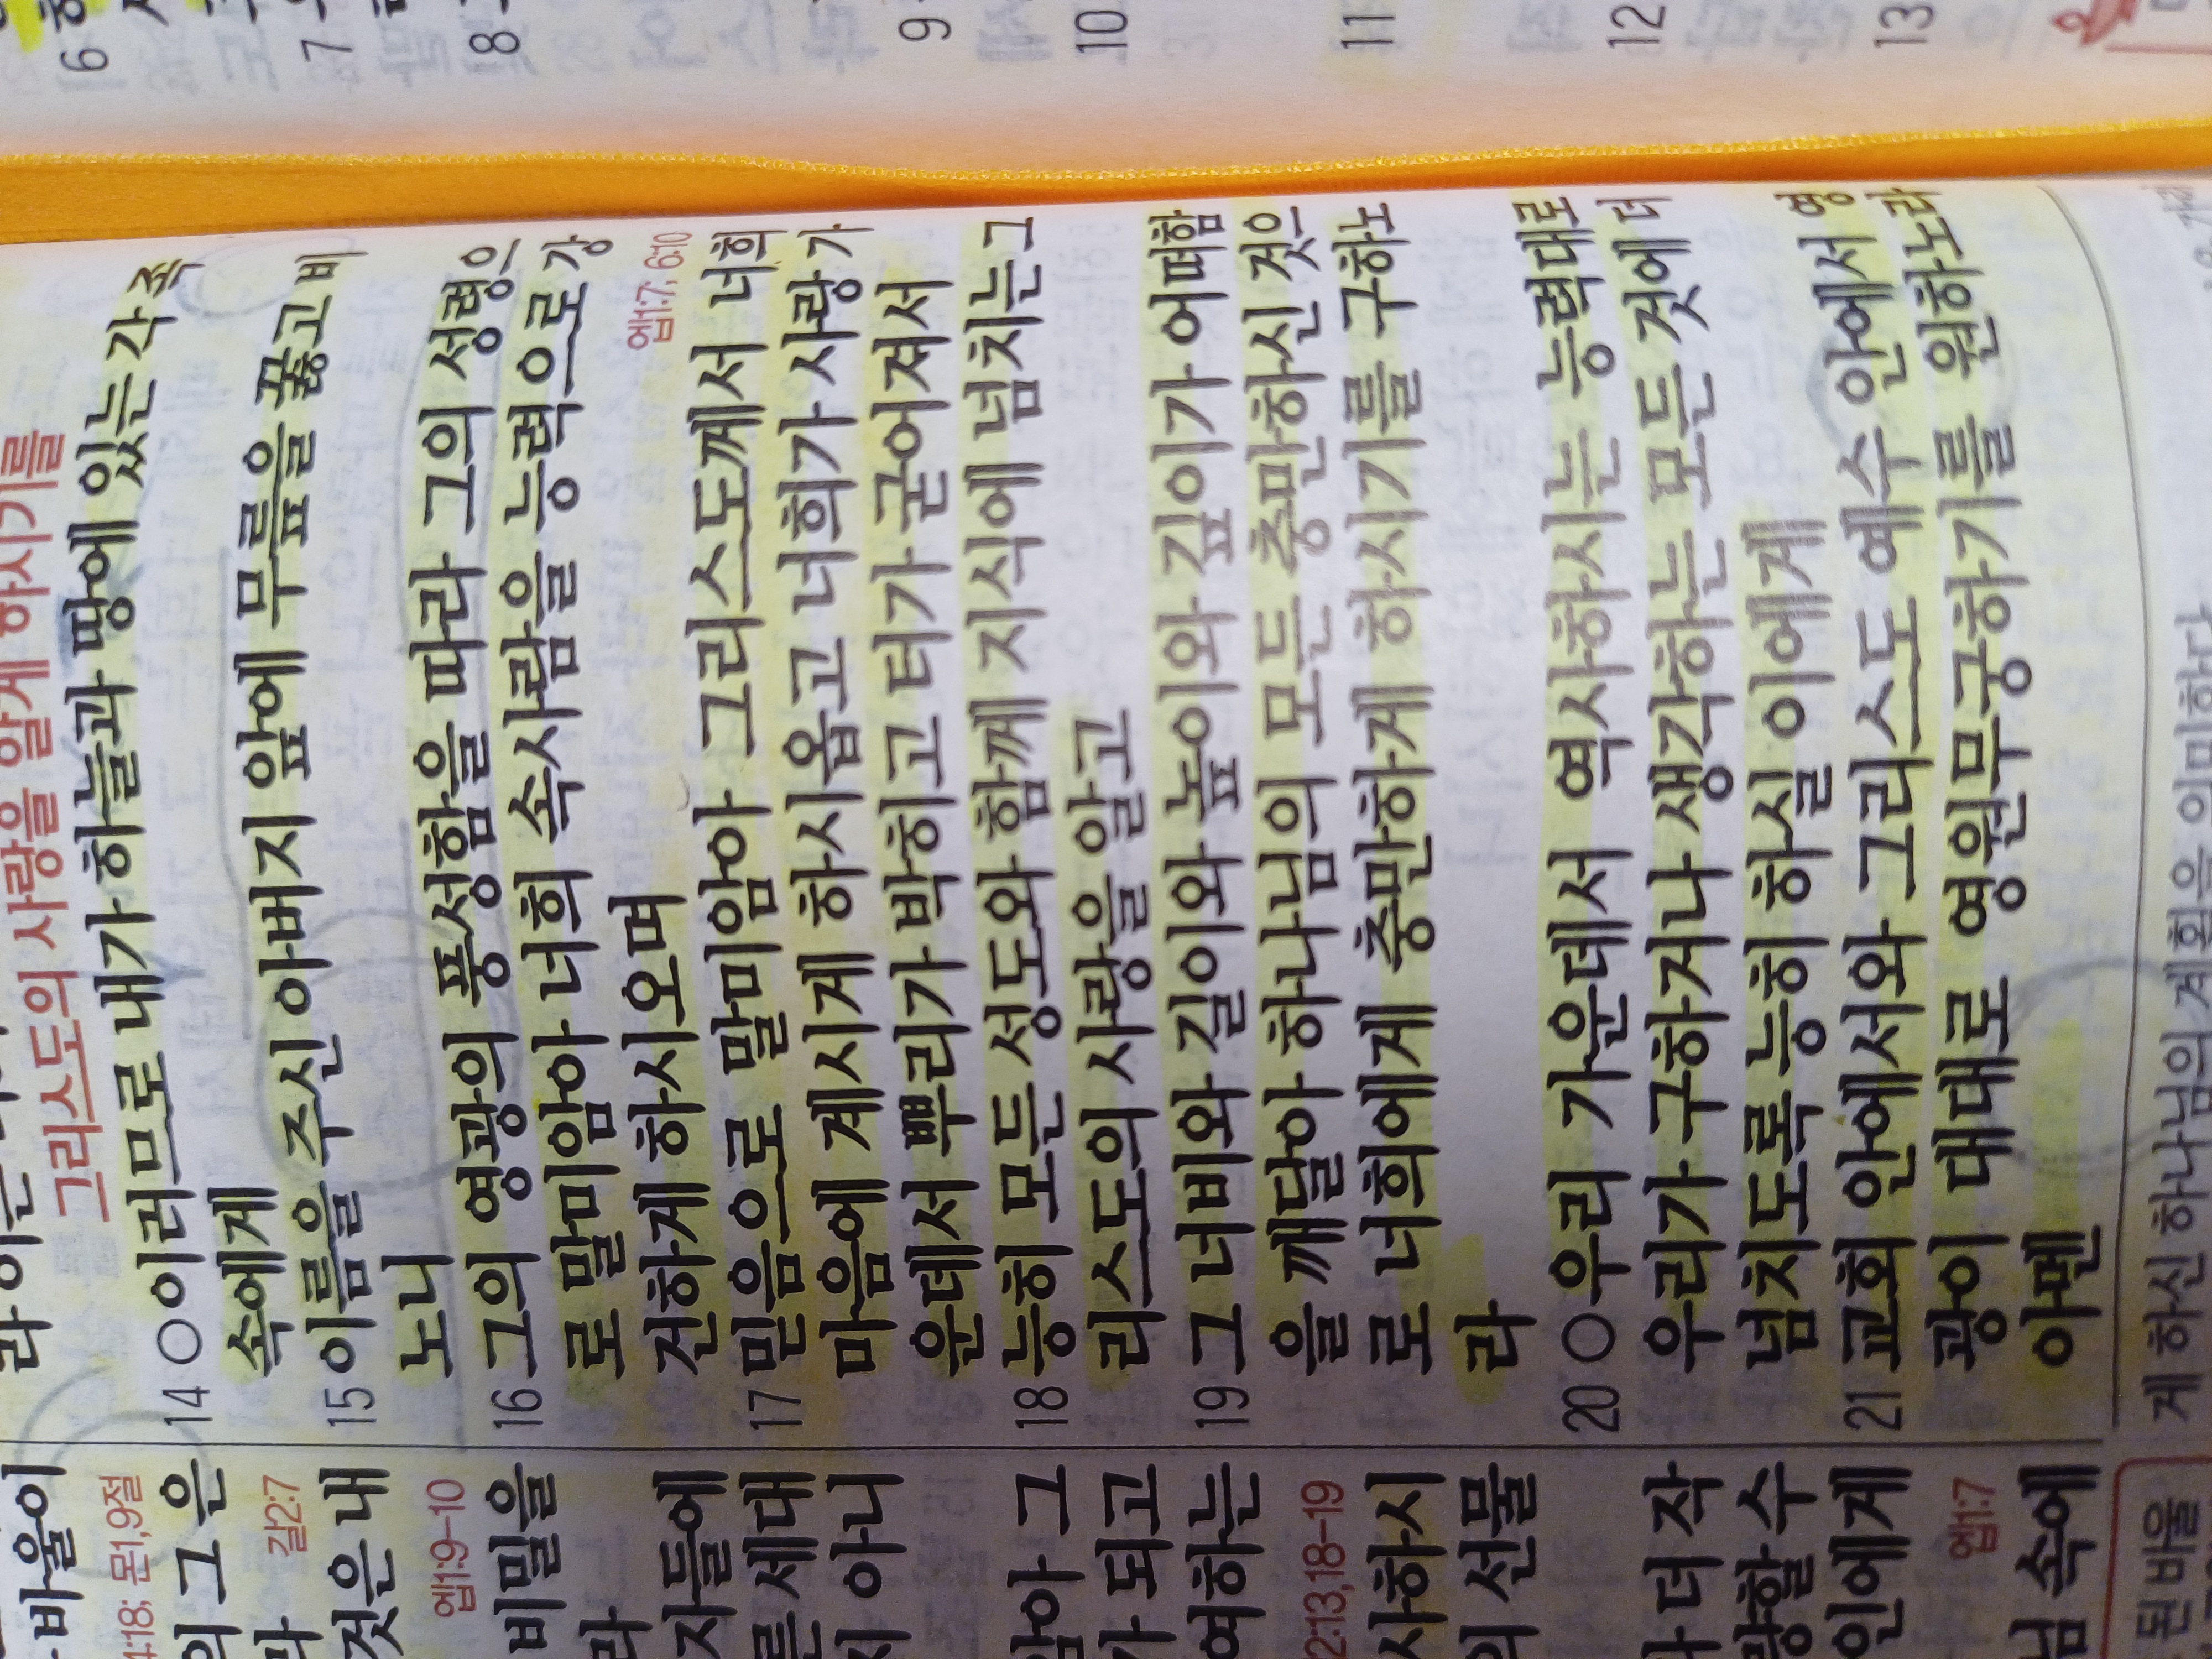 바울이
4:18; 몬1,9절
의 그 은
갈2:7
것은 내
엡1:9-10
비밀을
라
자들에
른 세대
아니
암아 그
가 되고
여하는
2:13,18-19
사하시
의 선물
더 작
량할 수
인에게
엡1:7
님 속에
된 바울
그리스도의 사랑을 알게 하시기를
14 ○이러므로 내가 하늘과 땅에 있는 각 족
속에게
15 이름을 주신 아버지 앞에 무릎을 꿇고 비
노니
16 그의 영광의 풍성함을 따라 그의 성령으
로 말미암아 너희 속사람을 능력으로 강
건하게 하시오며
엡1:7; 6:10
17 믿음으로 말미암아 그리스도께서 너희
마음에 계시게 하시옵고 너희가 사랑 가
운데서 뿌리가 박히고 터가 굳어져서
18 능히 모든 성도와 함께 지식에 넘치는 그
리스도의 사랑을 알고
19 그 너비와 길이와 높이와 깊이가 어떠함
을 깨달아 하나님의 모든 충만하신 것으
로 너희에게 충만하게 하시기를 구하노
라
20 ○우리 가운데서 역사하시는 능력대로
우리가 구하거나 생각하는 모든 것에 더
넘치도록 능히 하실 이에게
21 교회 안에서와 그리스도 예수 안에서 영
광이 대대로 영원무궁하기를 원하노라
아멘
게 하신 하나님의 계획을 의미한다
6
7
8
9
10
11
12
13